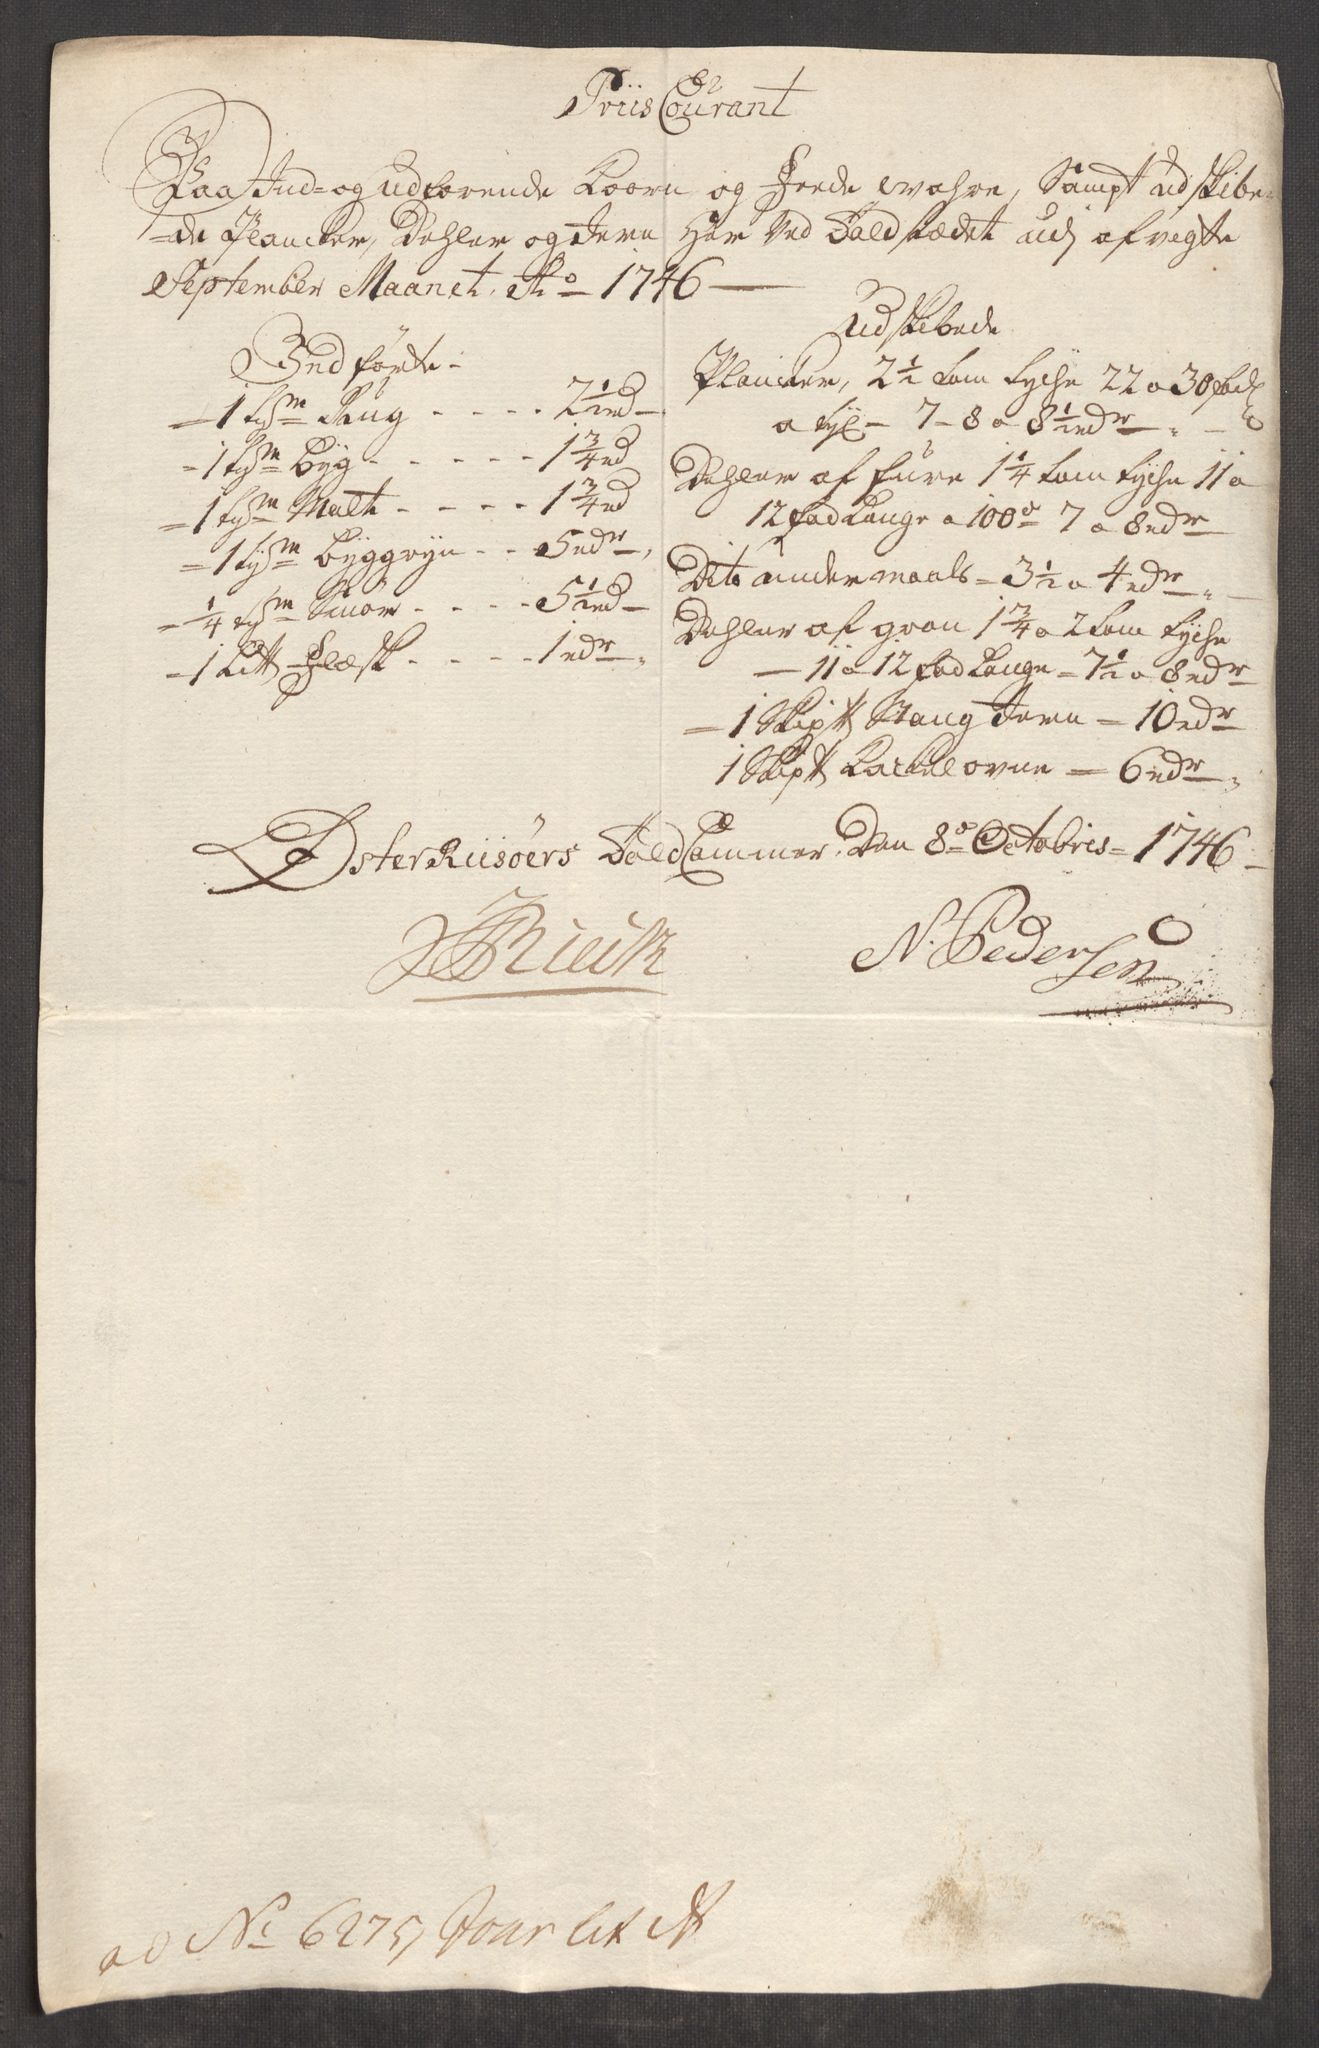 Priis Courant
Paa Ind- og udførende Korn og Feede wahre, Sampt udskibe-
-de Plancker, Dehler og Jern Her Ved Toldstædet udj afvigte
September Maanet. Ao 1746 —
Indførte -
- 1 tønne Rug - - - - 2 1/2 rd -
- 1 tønne Byg - - - - - 1 3/4 rd
- 1 tønne Malt - - - - 1 3/4 rd
- 1 tønne Byggryn - - 5 rdr -
- 1/4 tønne Smør - - - - 5 1/2 rd -
- 1 Litt Flæsk - - - - - 1 rdr -
Udskibede
Plancker, 2 1/2 tom tyche 22 a 30 fod
a tyl - 7 - 8 a 8 1/2 rdr -
Dehler af fure 1 1/4 tom tyche 11 a
12 fod Lange a 100de 7 a 8 rdr
Dito undermaals - 3 1/2 a 4 rdr -
Dehler af gran 1 3/4 a 2 tom tyche
- 11 a 12 fod Lange - 7 1/2 a 8 rdr
- 1 Skiptt Stang Jern - 10 rdr
1 Skiptt Kackelovne - 6 rdr -
Øster Riisøers Told Cammer, Den 8de Octobris - 1746 -
N. Pedersen
ad No 6275, Jour lit A